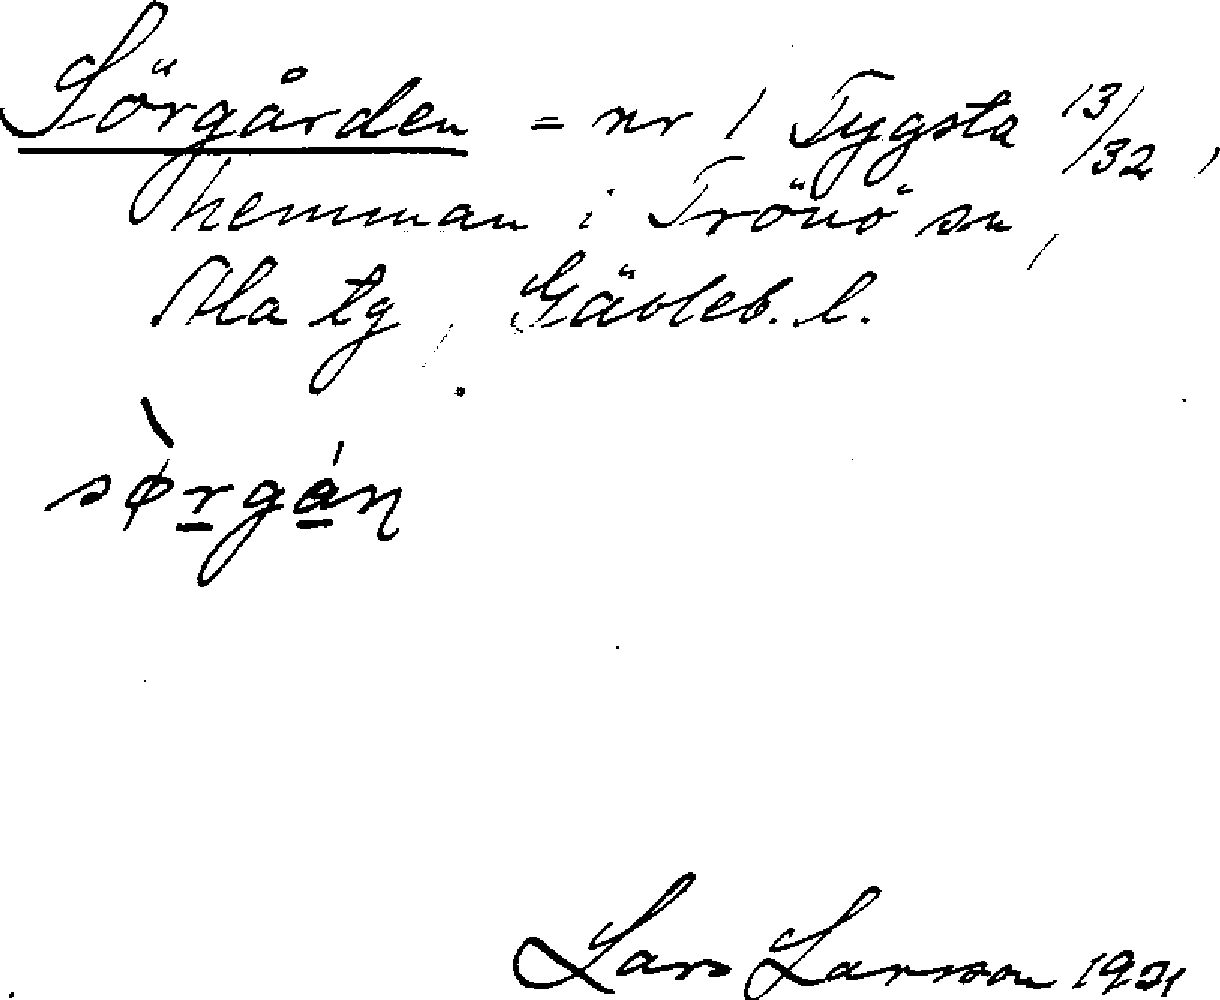 Sörgården = nr 1 Tygsta 13/32,
hemman i Trönö sn,
Ala tg, Gävleb. l.
sø̀rgán
Lars Larsson 1921